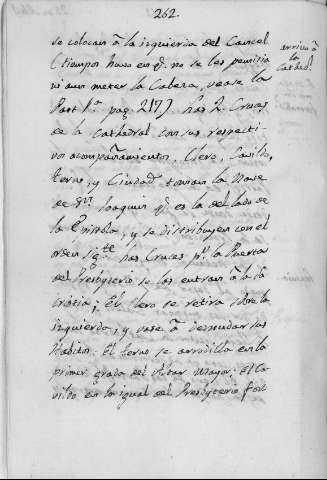 262.
se colocan â la izquierda del Cancel
(tiempos huvo en q.e no se les permitia
ni aun meter la Cabeza, vease la
Part 1.a pag. 217) las 2. Cruces
de la Cathedral con sus respecti-
vos acompañamientos, Clero, Cavildo,
terno, y Ciudad toman la Nave
de S.n Joaquin q.e es la del lado de
la Epistola, y se distribuyen con el
orden sig.te las Cruces p.r la Puerta
del Presbyterio se les entran â la
Sacristia; El Clero se retira sobre la
izquierda, y vase â desnudar sus
Habitos: El terno se arrodilla en la
primer grada del Altar Mayor: El Ca-
vildo en lo igual del Presbyterio for-
arrivo â
la
Cathed.l